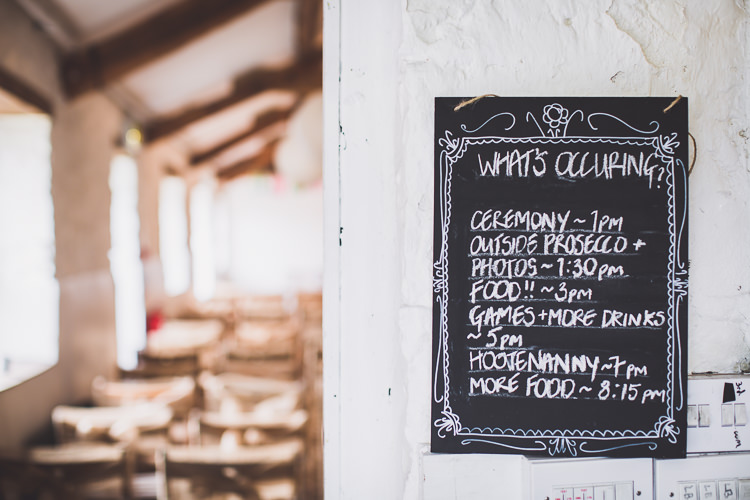 WHAT'S OCCURING?
CEREMONY ~ 1PM
OUTSIDE PROSECCO +
PHOTOS ~ 1:30 PM
FOOD!! ~ 3PM
GAMES + MORE DRINKS
~ 5PM
HOOTENANNY ~ 7PM
MORE FOOD ~ 8:15 PM